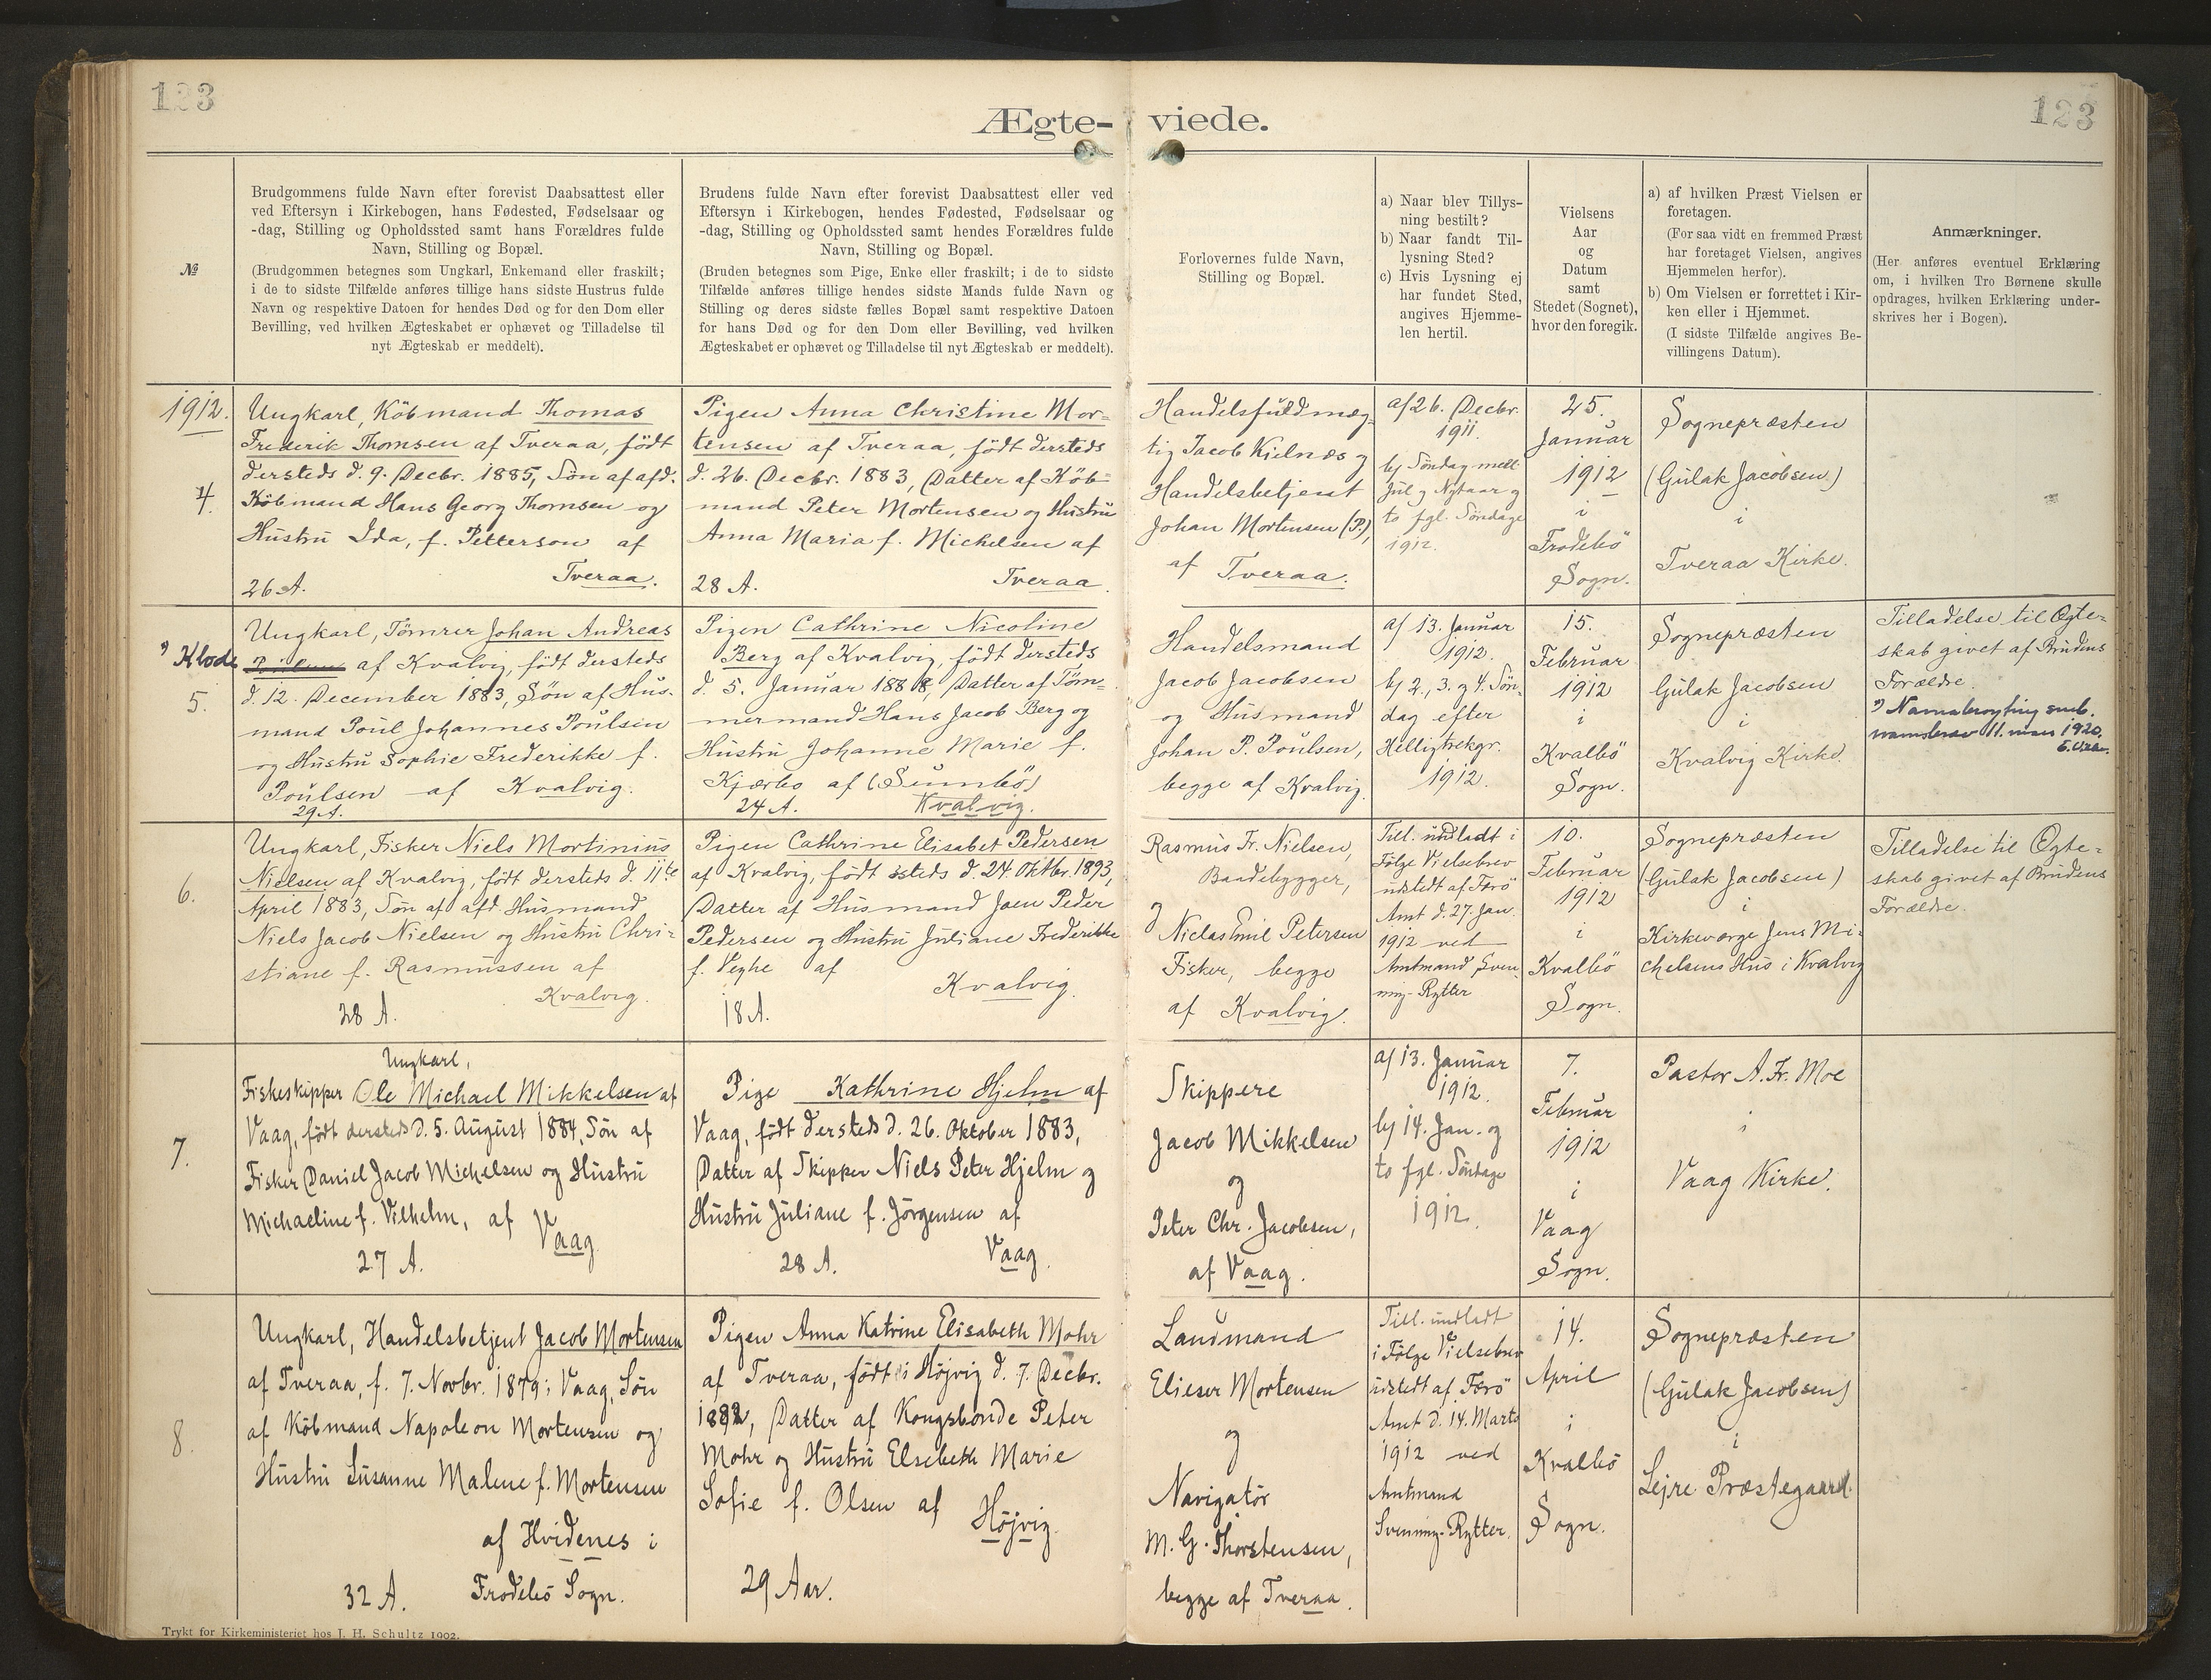 123
123
Ægte-
viede.
№
Brudgommens fulde Navn efter forevist Daabsattest eller
ved Eftersyn i Kirkebogen, hans Fødested, Fødselsaar og
-dag, Stilling og Opholdssted samt hans Forældres fulde
Navn, Stilling og Bopæl.
(Brudgommen betegnes som Ungkarl, Enkemand eller fraskilt;
i de to sidste Tilfælde anføres tillige hans sidste Hustrus fulde
Navn og respektive Datoen for hendes Død og for den Dom eller
Bevilling, ved hvilken Ægteskabet er ophævet og Tilladelse til
nyt Ægteskab er meddelt).
Brudens fulde Navn efter forevist Daabsattest eller ved
Eftersyn i Kirkebogen, hendes Fødested, Fødselsaar og
-dag, Stilling og Opholdssted samt hendes Forældres fulde
Navn, Stilling og Bopæl.
(Bruden betegnes som Pige, Enke eller fraskilt; i de to sidste
Tilfælde anføres tillige hendes sidste Mands fulde Navn og
Stilling og deres sidste fælles Bopæl samt respektive Datoen
for hans Død og for den Dom eller Bevilling, ved hvilken
Ægteskabet er ophævet og Tilladelse til nyt Ægteskab er meddelt).
Forlovernes fulde Navn,
Stilling og Bopæl.
a) Naar blev Tillys-
ning bestilt?
b) Naar fandt Til-
lysning Sted?
c) Hvis Lysning ej
har fundet Sted,
angives Hjemme-
len hertil.
Vielsens
Aar
og
Datum
samt
Stedet (Sognet),
hvor den foregik.
a) af hvilken Præst Vielsen er
foretagen.
(For saa vidt en fremmed Præst
har foretaget Vielsen, angives
Hjemmelen herfor).
b) Om Vielsen er forrettet i Kir-
ken eller i Hjemmet.
(I sidste Tilfælde angives Be-
villingens Datum).
Anmærkninger.
(Her anføres eventuel Erklæring
om, i hvilken Tro Børnene skulle
opdrages, hvilken Erklæring under-
skrives her i Bogen).
1912.
4.
Ungkarl, Köbmand Thomas
Frederik Thomsen af Tveraa, födt
dersteds d. 9. Decbr. 1885, Sön af afd.
Köbmand Hans Georg Thomsen og
Hustru Ida, f. Petterson af
Tveraa.
26 A.
Pigen Anna Christine Mor-
tensen af Tveraa, födt dersteds
d. 26. Decbr. 1883, Datter af Köb-
mand Peter Mortensen og Hustru
Anna Maria f. Michelsen af
Tveraa.
28 A.
Handelsfuldmæg-
tig Jacob Kjelnæs og
Handelsbetjent
Johan Mortensen (P.),
af Tveraa.
a/ 26. Decbr.
1911.
b/ Söndag mell
Jul og Nytaar og
to fgl. Söndage
1912.
25.
Januar
1912
i
Frodebö
Sogn.
Sognepræsten
(Gulak Jacobsen)
i
Tveraa Kirke.
*) Klode
5.
Ungkarl, Tömrer Johan Andreas
af Kvalvig, födt dersteds
d. 12. December 1883, Sön af Hus-
mand Poul Johannes Poulsen
og Hustru Sophie Frederikke f.
Poulsen af Kvalvig.
29 A.
Pigen Cathrine Nicoline
Berg af Kvalvig, födt dersteds
d. 5. Januar 1888, Datter af Töm-
mermand Hans Jacob Berg og
Hustru Johanne Marie f.
Kjærbo af (Sumbö)
24 A. Kvalvig.
Handelsmand
Jacob Jacobsen
og Husmand
Johan P. Poulsen,
begge af Kvalvig.
a/ 13. Januar
1912.
b/ 2., 3. og 4. Sön-
dag efter
Helligtrekgr.
1912.
15.
Februar
1912
i
Kvalbö
Sogn.
Sognepræsten
Gulak Jacobsen
i
Kvalvig Kirke.
Tilladelse til Ægte-
skab givet af Brudens
Forældre.
11. mars 1920.
6.
Ungkarl, Fisker Niels Mortinius
Nielsen af Kvalvig, födt dersteds d. 11te
April 1883, Sön af afd. Husmand
Niels Jacob Nielsen og Hustru Chri-
stiane f. Rasmussen af
Kvalvig.
28 A.
Pigen Cathrine Elisabet Pedersen
af Kvalvig, födt ssteds d. 24. Oktbr. 1893,
Datter af Husmand Joen Peder
Pedersen og Hustru Juliane Frederikke
f. Veghe af Kvalvig.
18 A.
Rasmus Fr. Nielsen,
Baadebygger,
og
Niclas Emil Petersen
Fisker, begge
af Kvalvig.
Till. undladt i
Fölge Vielsebrev
udstedt af Færö
Amt d. 27. Jan.
1912 ved
Amtmand Sven-
ning-Rytter
10.
Februar
1912
i
Kvalbö
Sogn.
Sognepræsten
(Gulak Jacobsen)
i
Kirkeværge Jens Mi-
chelsens Hus i Kvalvig
Tilladelse til Ægte-
skab givet af Brudens
Forældre.
7.
Ungkarl,
Fiskeskipper Ole Michael Mikkelsen af
Vaag, födt dersteds d. 5. August 1884, Sön af
Fisker Daniel Jacob Michelsen og Hustru
Michaeline f. Vilhelm, af Vaag
27 A.
Pige Kathrine Hjelm af
Vaag, födt dersteds d. 26. Oktober 1883,
Datter af Skipper Niels Peter Hjelm og
Hustru Juliane f. Jörgensen af
Vaag.
28 A.
Skippere
Jacob Mikkelsen
og
Peter Chr. Jacobsen,
af Vaag.
a/ 13. Januar
1912.
b/ 14. Jan. og
to fgl. Söndage
1912.
7.
Februar
1912
i
Vaag
Sogn.
Pastor A. Fr. Moe
i
Vaag Kirke.
8.
Ungkarl, Handelsbetjent Jacob Mortensen
af Tveraa, f. 7. Novbr. 1879 i Vaag, Sön
af Köbmand Napoleon Mortensen og
Hustru Susanne Malene f. Mortensen
af Hvidenes i
32 A. Frodebö Sogn.
Pigen Anna Katrine Elisabeth Mohr
af Tveraa, födt i Höjvig d. 7. Decbr.
1882, Datter af Kongsbonde Peter
Mohr og Hustru Elsebeth Marie
Sofie f. Olsen af Höjvig.
29 Aar.
Landmand
Elieser Mortensen
og
Navigatör
M. G. Thorstensen,
begge af Tveraa.
Till. undladt
i Fölge Vielsebrev
udstedt af Færö
Amt d. 14. Marts
1912 ved
Amtmand
Svenning-Rytter.
14.
April
i
Kvalbö
Sogn.
Sognepræsten
(Gulak Jacobsen)
i
Sejre Præstegaard.
Trykt for Kirkeministeriet hos J. H. Schultz 1902.